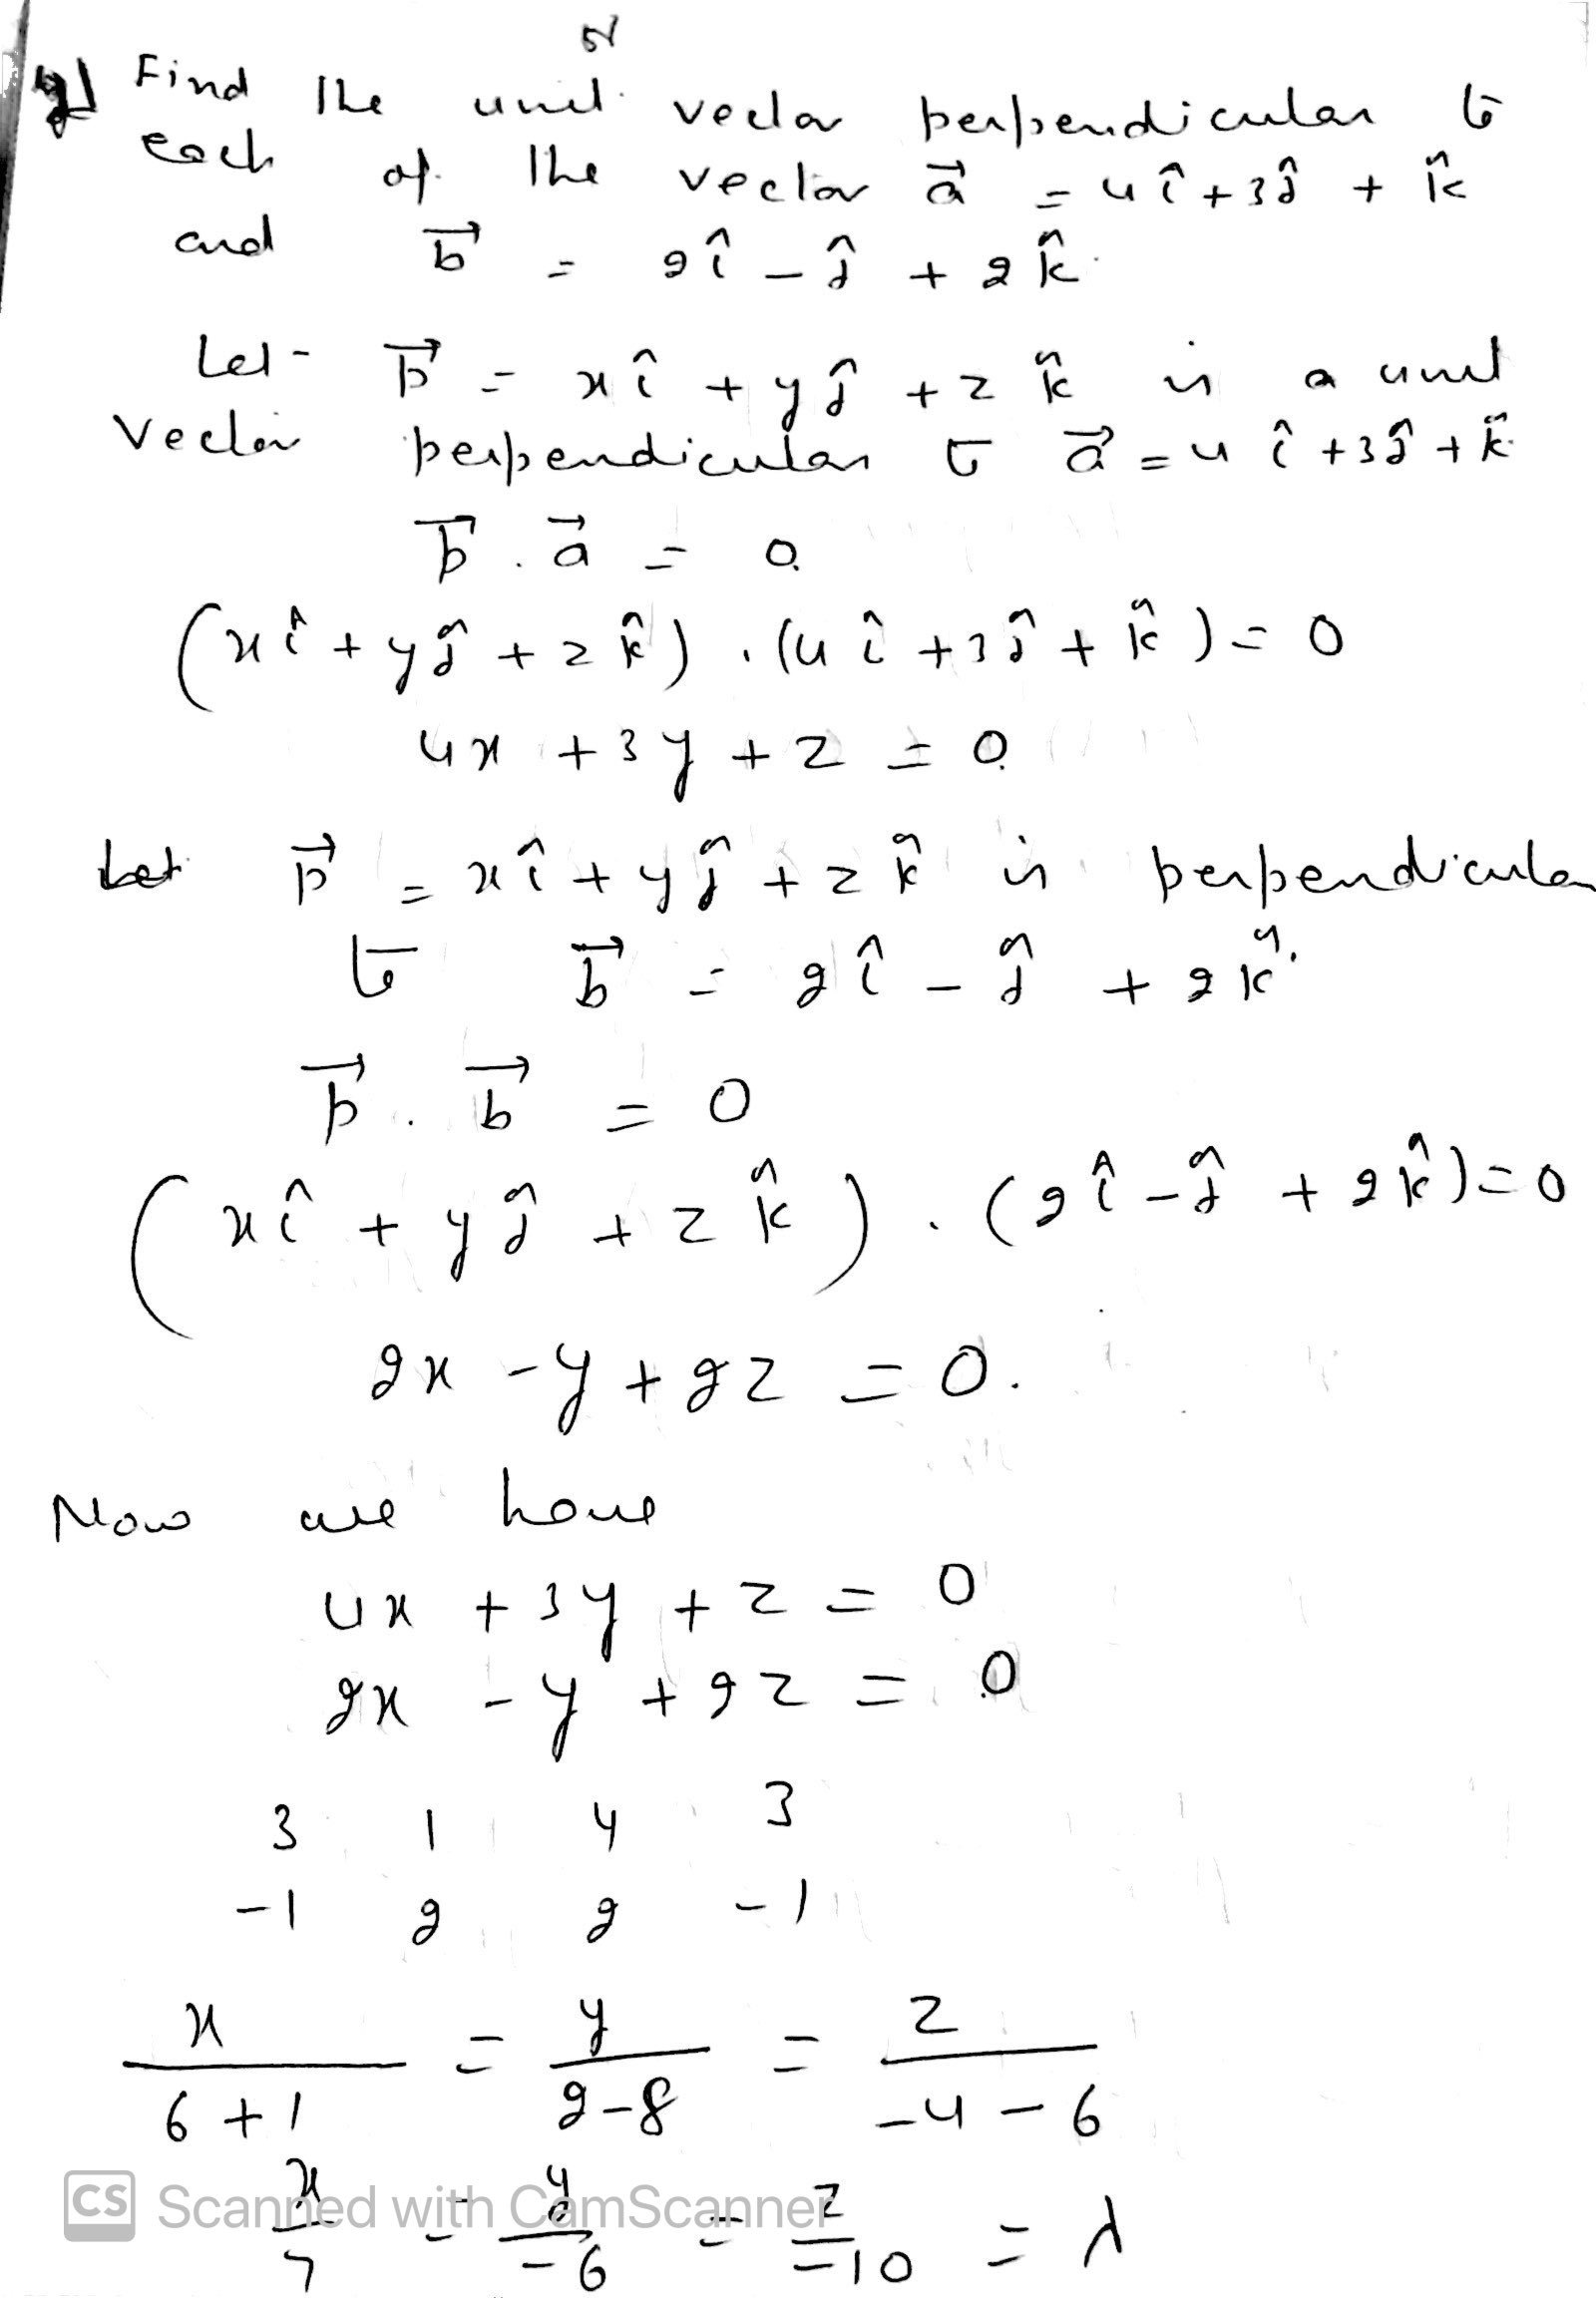 or
Find the unit vector perpendicular to
each of the vector a⃗ = 4î + 3ĵ + k̂
and b⃗ = 2î - ĵ + 2k̂
Let p⃗ = xî + yĵ + zk̂ is a unit
vector perpendicular to a⃗ = 4î + 3ĵ + k̂
p⃗ . a⃗ = 0
(xî + yĵ + zk̂) . (4î + 3ĵ + k̂) = 0
4x + 3y + z = 0
Let p⃗ = xî + yĵ + zk̂ is perpendicular
to b⃗ = 2î - ĵ + 2k̂
p⃗ . b⃗ = 0
(xî + yĵ + zk̂) . (2î - ĵ + 2k̂) = 0
2x - y + 2z = 0.
Now we have
4x + 3y + z = 0
2x - y + 2z = 0
3 1 4 3
-1 2 2 -1
x/(6+1) = y/(2-8) = z/(-4-6)
x/7 = y/-6 = z/-10 = λ
CS Scanned with CamScanner